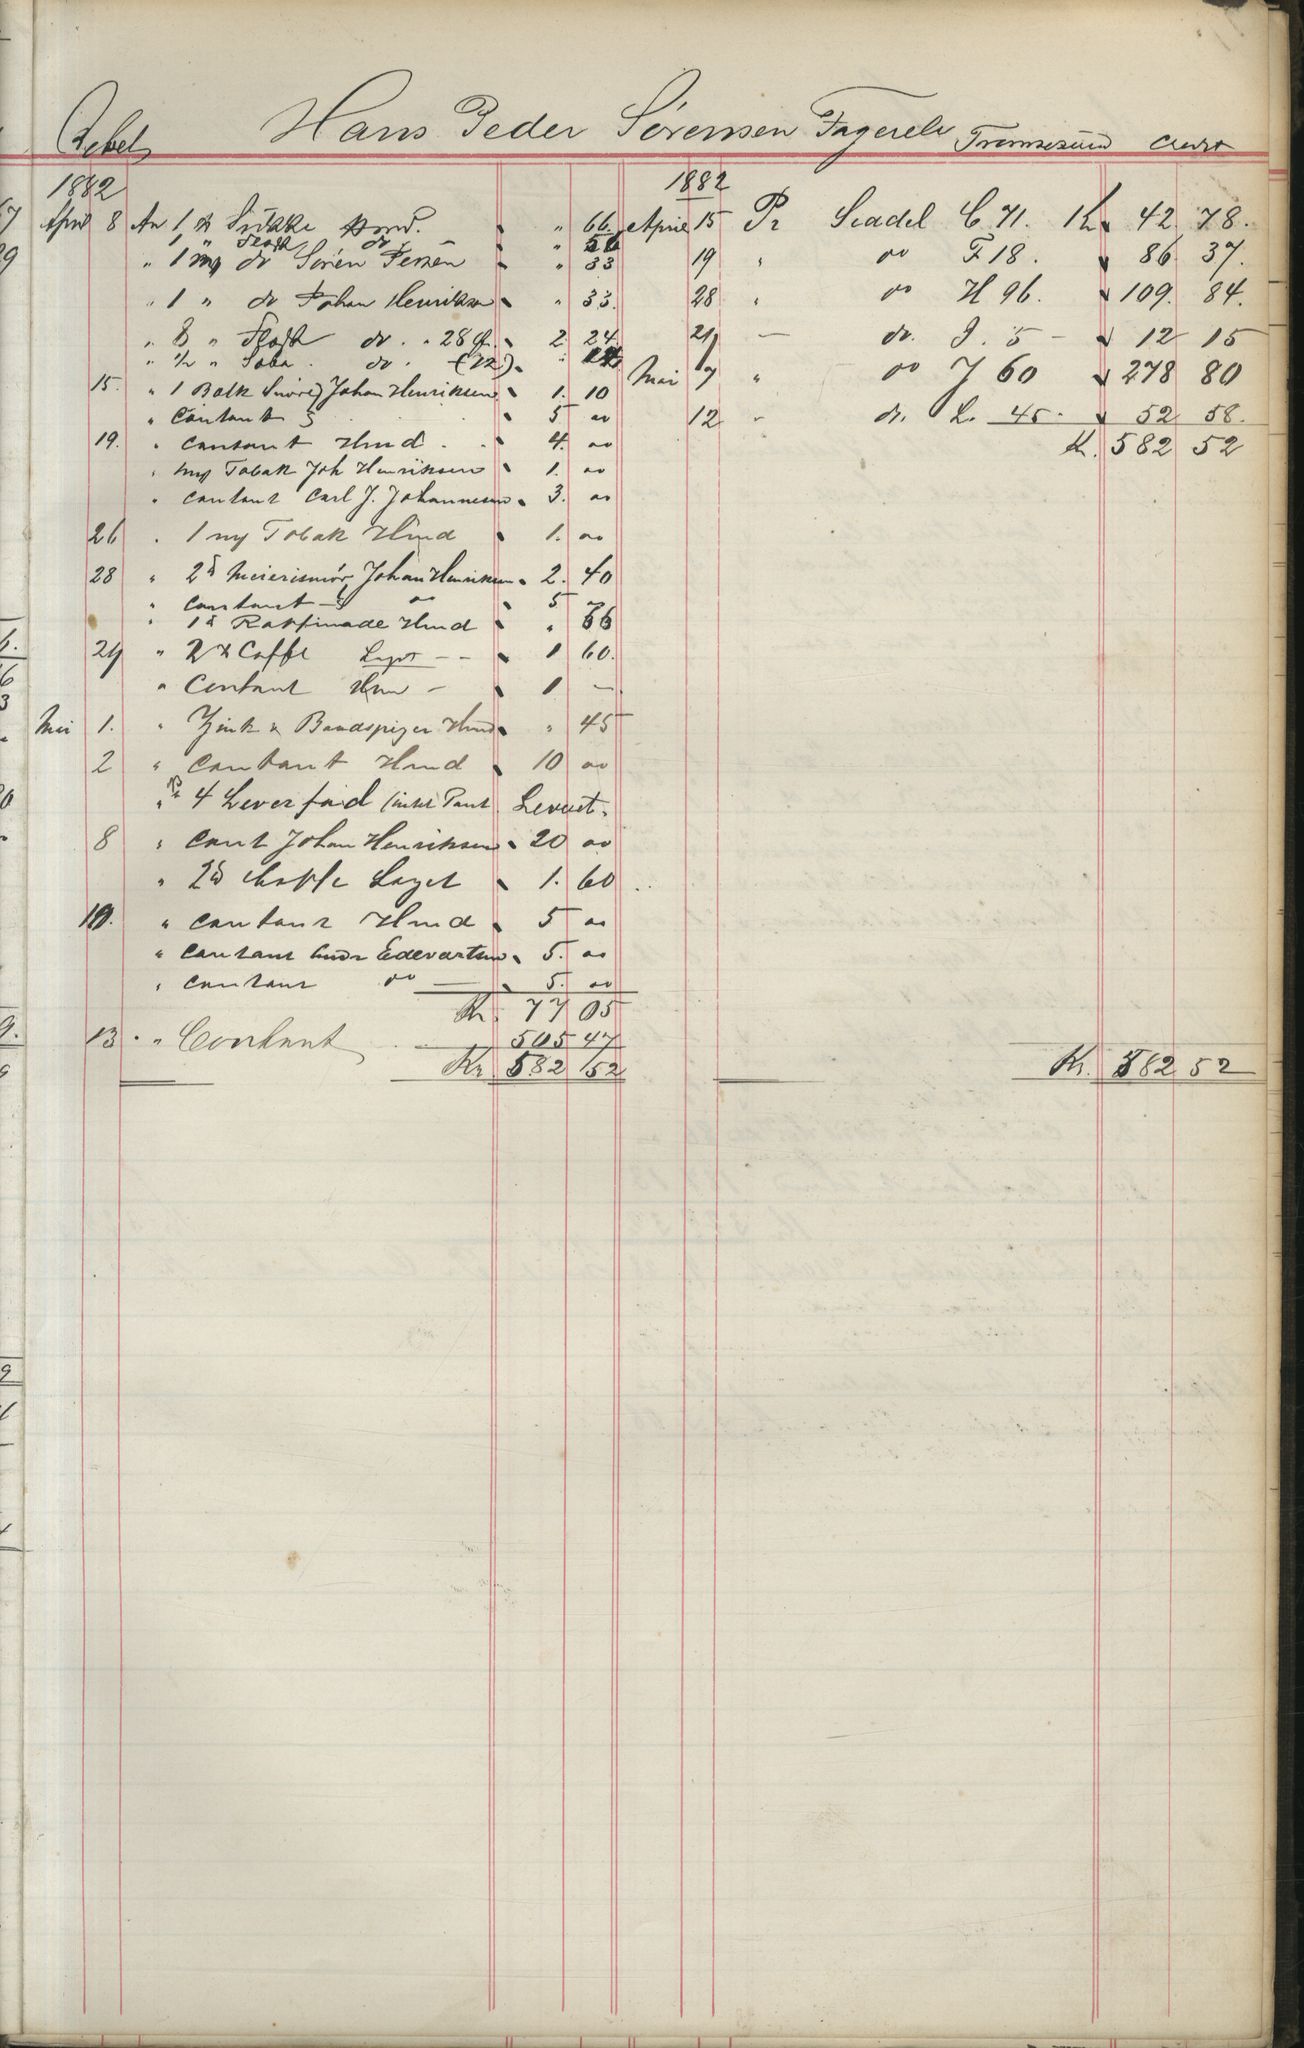 Debet Hans Peder Sørensen Fagereli Tromsesund Credit
1882
April 8 An 1 ℔ Sukker Hmd. " 66
1 " Flesk do
" 1 mrk do Sören " 33
" 1 " do Johan Henriksen " 33.
" 8 " Flesk do. " 28 2 24
" 1/2 " do. (72)
15. " 1 Johan Henriksen 1. 10
" Contant 5 00
19. " Contant Hmd 4. 00
" Tobak Joh Henriksen 1. 00
" Contant Carl J. Johannesen 3. 00
26 " 1 Tobak Hmd 1. 00
28 " 2 ℔ Meierismör Johan Henriksen 2. 40
" Contant do 5
" 1 ℔ Raffinade Hmd "
29 " 2 ℔ Caffe 1 60.
" Contant Hmd 1 —
Mai 1. " Zink & Baadspiger Hmd " 45
2 " Contant Hmd 10 00
" 4 Leverfad
8 " Cont Johan Henriksen 20 00
" 2 ℔ Kaffe 1. 60
10. " Contant Hmd 5 00
" Contant Edevartsen 5. 00
" Contant do 5. 00
Kr. 77 05
13 " Contant 505 47
Kr. 582 52
1882
April 15 Pr Seadel C 71. Kr 42 78.
19 " do F 18. 86 37.
28 " do H 96. 109. 84.
29 — do. I. 5 — 12 15
Mai 7 " do J 60 278 80
12 " do. L. 45 52 58.
Kr. 582 52
Kr. 582 52